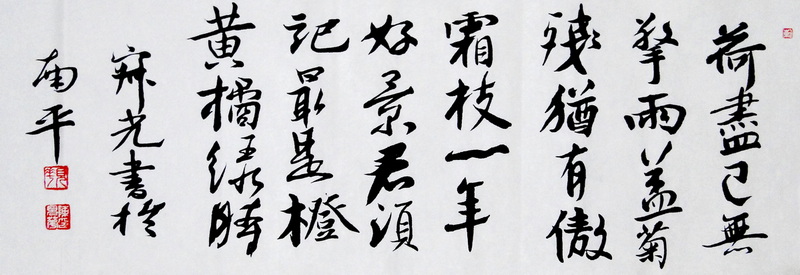 荷盡已無
擎雨蓋菊
殘猶有傲
霜枝一年
好景君須
記最是橙
黄橘綠時
光書於
南平